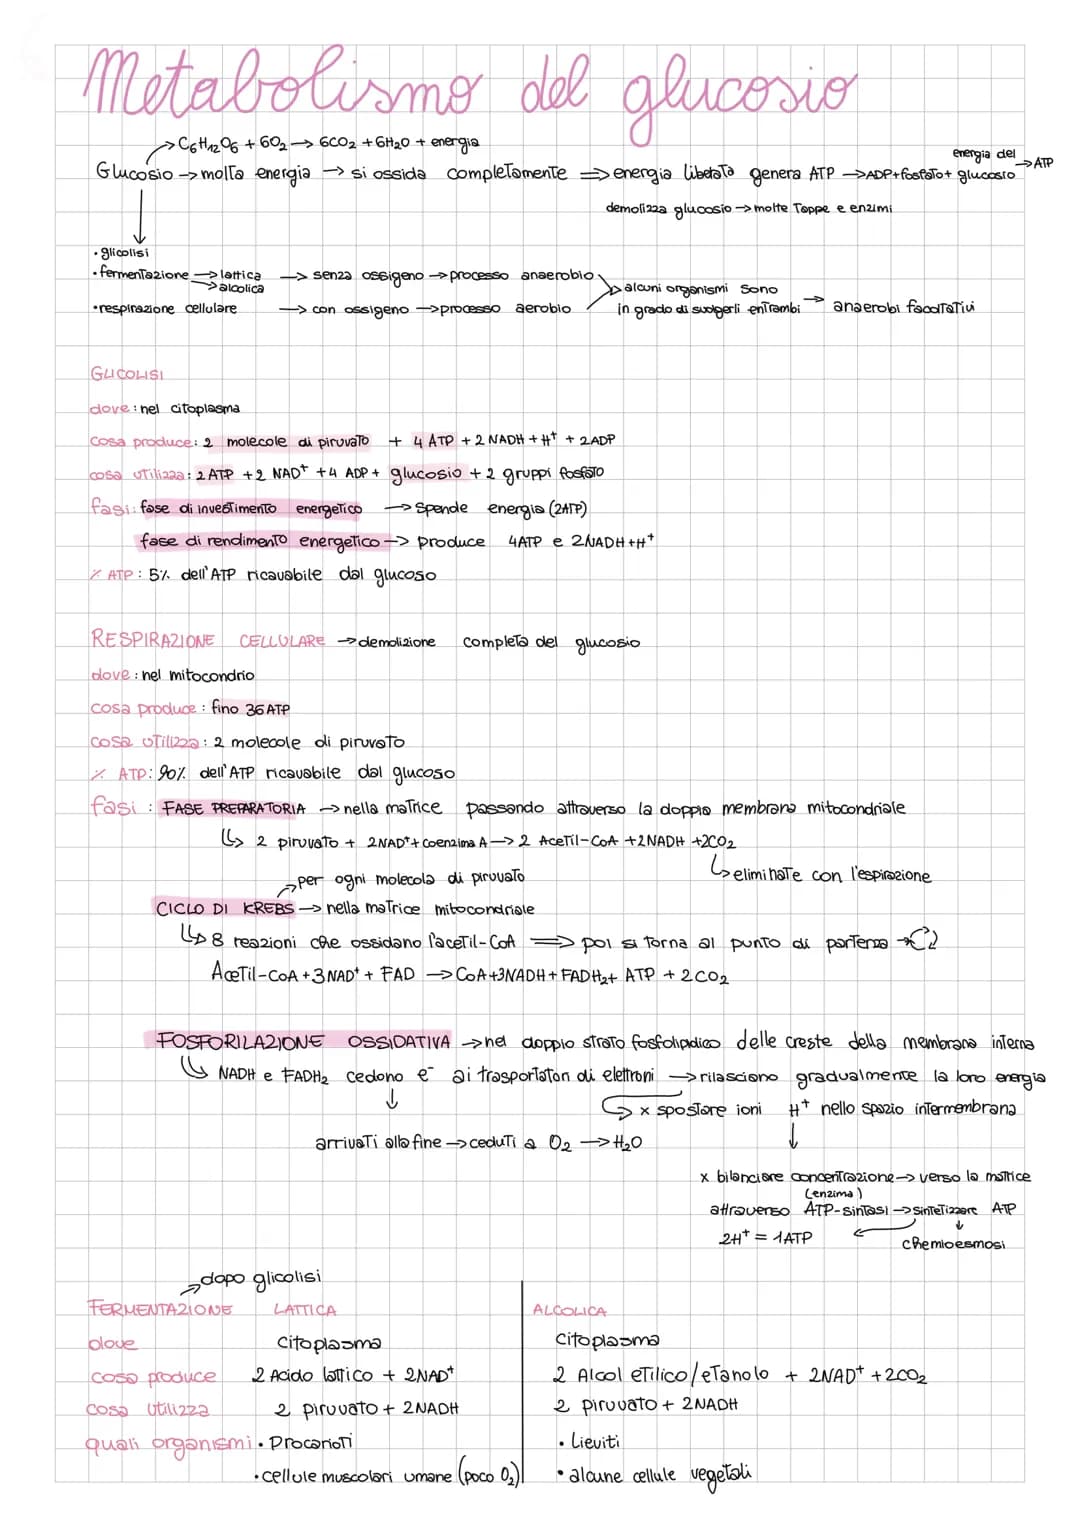 Metabolismo del glucosio
→ C6H12O6 + 6O2 → 6CO2 + 6H2O + energia
Glucosio → molta energia → si ossida completamente ⇒ energia liberata genera ATP → ADP + fosfato + energia del glucosio → ATP
demolizza glucosio → molte tappe e enzimi
• glicolisi
• fermentazione → lattica → senza ossigeno → processo anaerobio
→ alcolica
→ alcuni organismi sono
in grado di svolgerli entrambi → anaerobi facoltativi
• respirazione cellulare → con ossigeno → processo aerobio
GLICOLISI
dove: nel citoplasma
cosa produce: 2 molecole di piruvato + 4 ATP + 2 NADH + H+ + 2ADP
cosa utilizza: 2 ATP + 2 NAD+ + 4 ADP + glucosio + 2 gruppi fosfato
fasi: fase di investimento energetico → spende energia (2ATP)
fase di rendimento energetico → produce 4ATP e 2NADH + H+
% ATP: 5% dell'ATP ricavabile dal glucoso
RESPIRAZIONE CELLULARE → demolizione completa del glucosio
dove: nel mitocondrio
cosa produce: fino 36 ATP
cosa utilizza: 2 molecole di piruvato
% ATP: 90% dell'ATP ricavabile dal glucoso
fasi: FASE PREPARATORIA → nella matrice passando attraverso la doppia membrana mitocondriale
↳ 2 piruvato + 2NAD+ + coenzima A → 2 Acetil-CoA + 2NADH + 2CO2
↳ eliminate con l'espirazione
→ per ogni molecola di piruvato
CICLO DI KREBS → nella matrice mitocondriale
↳ 8 reazioni che ossidano l'acetil-CoA ⇒ poi si torna al punto di partenza →
Acetil-CoA + 3NAD+ + FAD → CoA + 3NADH + FADH2 + ATP + 2CO2
FOSFORILAZIONE OSSIDATIVA → nel doppio strato fosfolipidico delle creste della membrana interna
↳ NADH e FADH2 cedono e- ai trasportatori di elettroni → rilasciano gradualmente la loro energia
↓
↳ x spostare ioni H+ nello spazio intermembrana
arrivati alla fine → ceduti a O2 → H2O
↓
x bilanciare concentrazione → verso la matrice
(enzima)
attraverso ATP-sintasi → sintetizzare ATP
2H+ = 1ATP ← ↓
chemioesmosi
→ dopo glicolisi
FERMENTAZIONE LATTICA ALCOLICA
dove citoplasma citoplasma
cosa produce 2 Acido lattico + 2NAD+ 2 Alcol etilico/etanolo + 2NAD+ + 2CO2
cosa utilizza 2 piruvato + 2NADH 2 piruvato + 2NADH
quali organismi • Procarioti • Lieviti
• cellule muscolari umane (poco O2) • alcune cellule vegetali